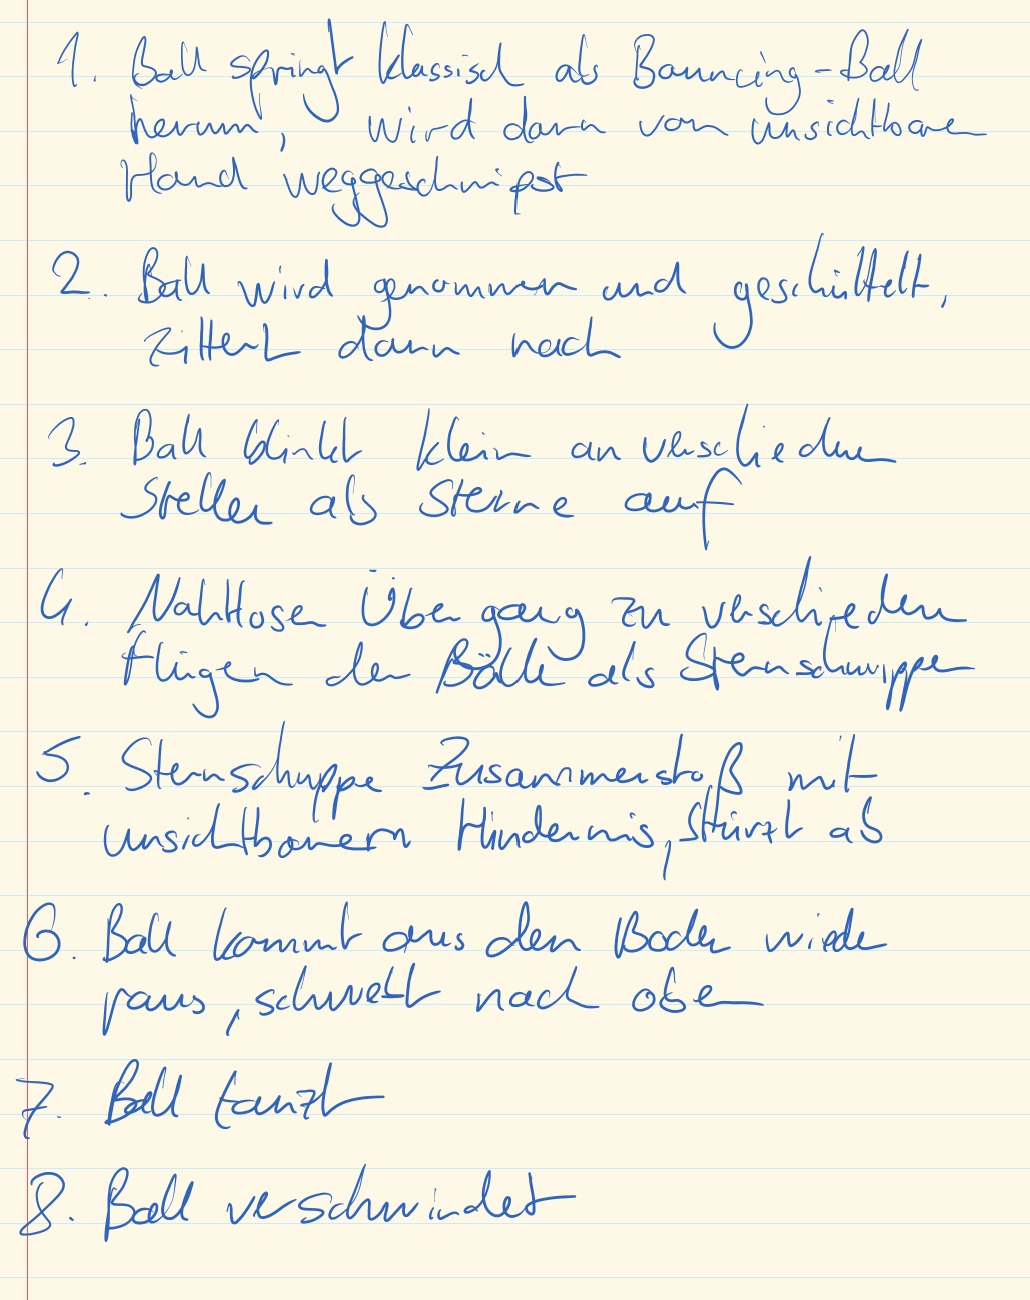 1. Ball springt klassisch als Bouncing-Ball
herum, wird dann von unsichtbaren
Hand weggeschnipst
2. Ball wird genommen und geschüttelt,
zittert dann nach
3. Ball blinkt klein an verschieden
Stellen als Sterne auf
4. Nahtloser Übergang zu verschieden
flügen der Bälle als Sternschnuppen
5. Sternschuppe Zusammenstoß mit
unsichtbarem Hindernis, stürzt ab
6. Ball kommt aus den Boden wieder
raus, schwebt nach oben
7. Ball tanzt
8. Ball verschwindet